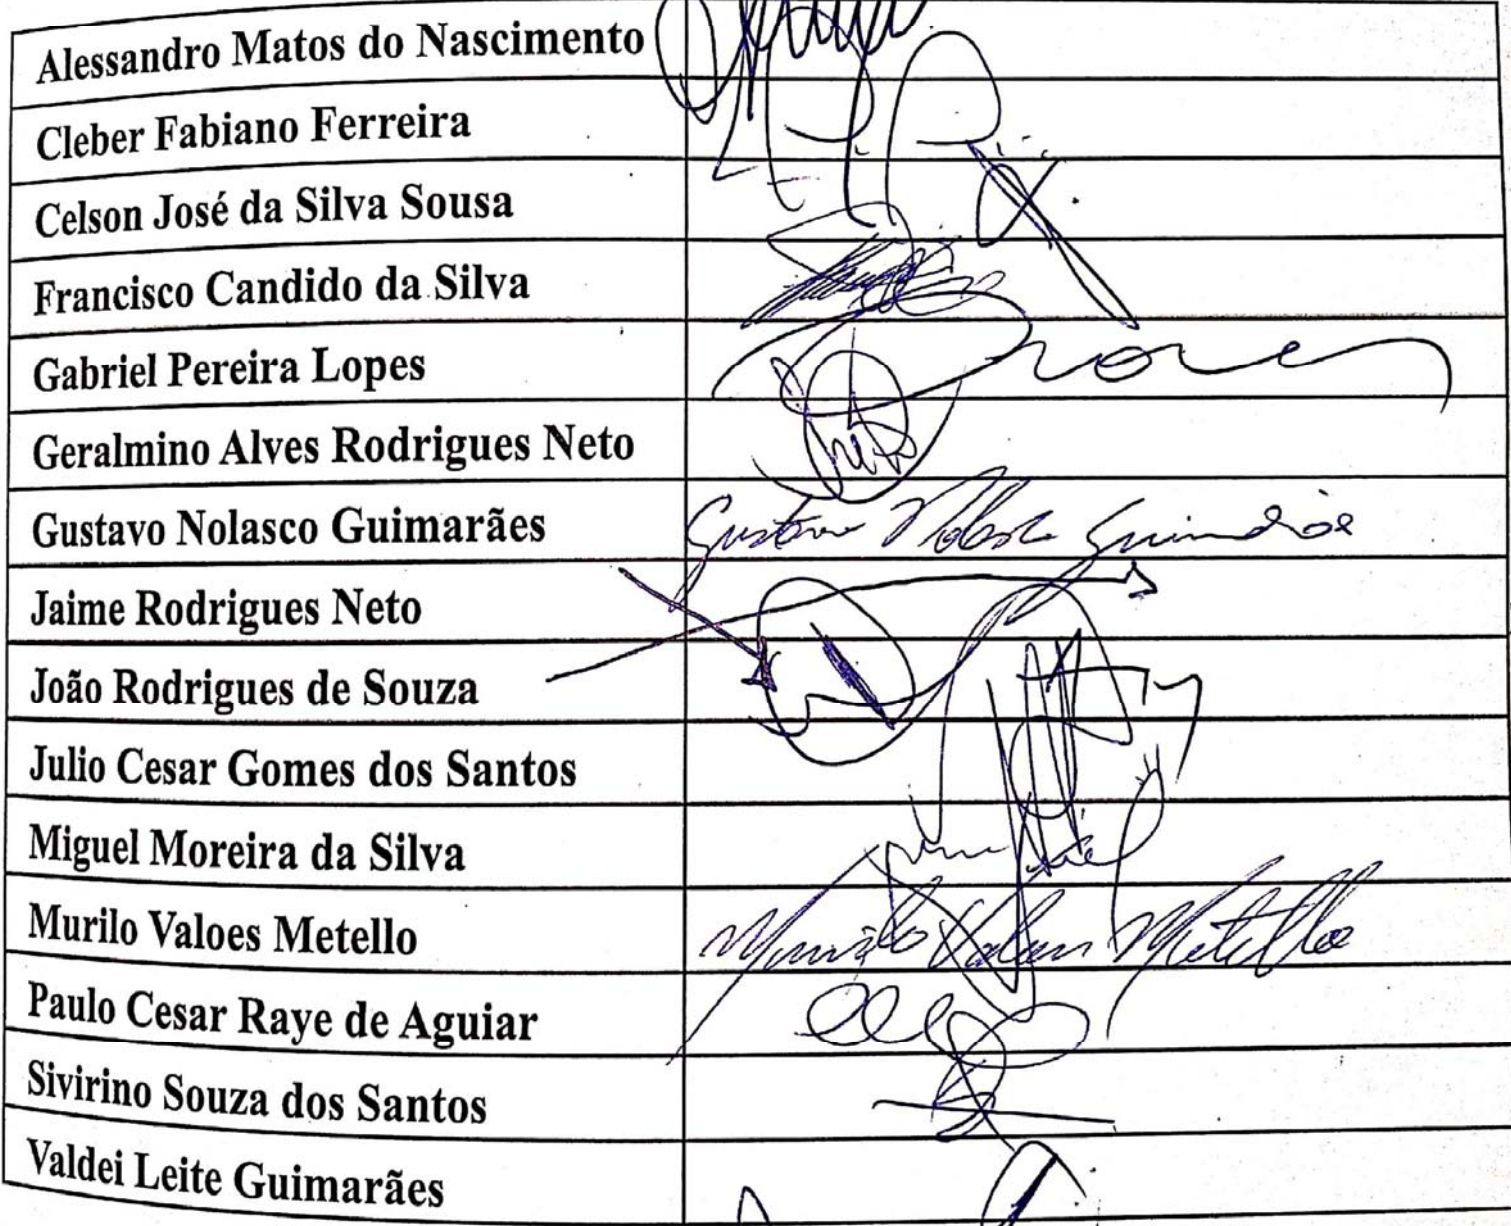 Alessandro Matos do Nascimento
Cleber Fabiano Ferreira
Celson José da Silva Sousa
Francisco Candido da Silva
Gabriel Pereira Lopes
Geralmino Alves Rodrigues Neto
Gustavo Nolasco Guimarães Gustavo Nolasco Guimarães
Jaime Rodrigues Neto
João Rodrigues de Souza
Julio Cesar Gomes dos Santos
Miguel Moreira da Silva
Murilo Valoes Metello Murilo Valoes Metello
Paulo Cesar Raye de Aguiar
Sivirino Souza dos Santos
Valdei Leite Guimarães